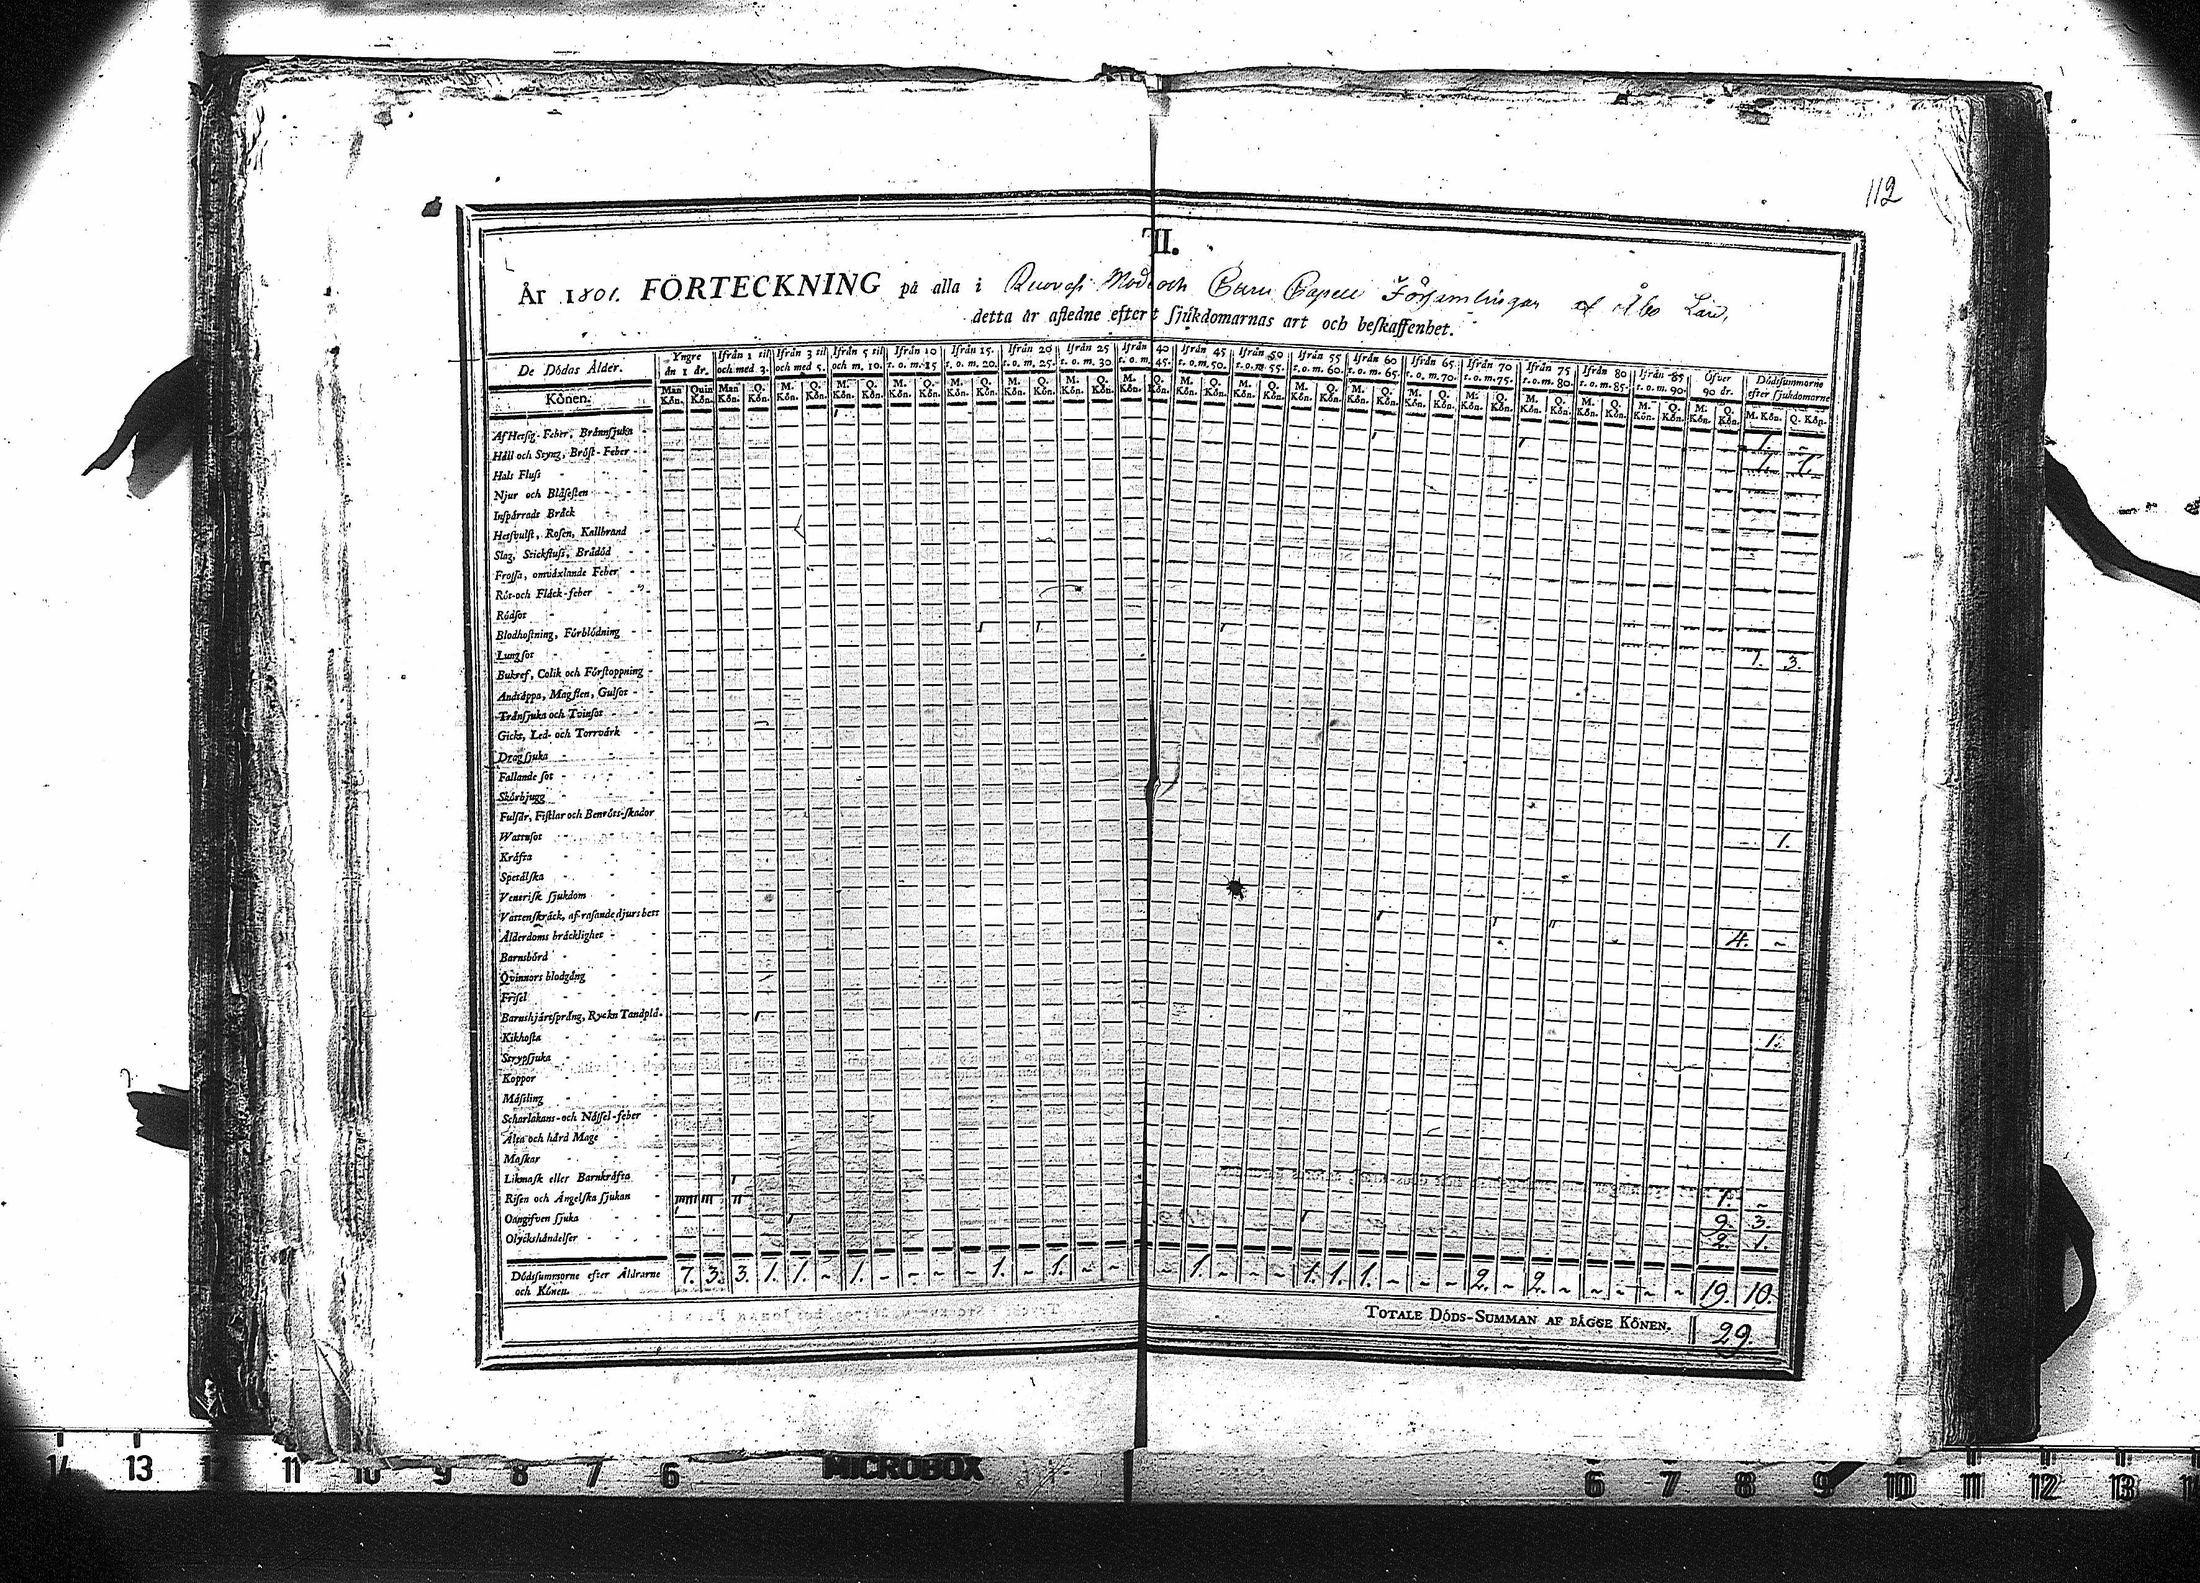 112
II.
År 1801. FÖRTECKNING på alla i Moder och Församlingar af Åbo Län,
detta år afledne efter sjukdomarnas art och beskaffenhet.
De Dödas Ålder. Yngre än 1 år. Ifrån 1 til och med 3. Ifrån 3 til och med 5. Ifrån 5 til och m. 10. Ifrån 10 t. o. m. 15 Ifrån 15. t. o. m. 20. Ifrån 20 t. o. m. 25. Ifrån 25 t. o. m. 30 Ifrån 40 t. o. m. 45. Ifrån 45 t. o. m. 50. Ifrån 50 t. o. m. 55. Ifrån 55 t. o. m. 60. Ifrån 60 t. o. m. 65. Ifrån 65 t. o. m. 70. Ifrån 70 t. o. m. 75. Ifrån 75 t. o. m. 80. Ifrån 80 t. o. m. 85. Ifrån 85 t. o. m. 90. Öfver 90 år. Dödssummorne efter sjukdomarne
Könen. Man Kön. Quin Kön. Man Kön. Q. Kön. M. Kön. Q. Kön. M. Kön. Q. Kön. M. Kön. Q. Kön. M. Kön. Q. Kön. M. Kön. Q. Kön. M. Kön. Q. Kön. M. Kön. Q. Kön. M. Kön. Q. Kön. M. Kön. Q. Kön. M. Kön. Q. Kön. M. Kön. Q. Kön. M. Kön. Q. Kön. M. Kön. Q. Kön. M. Kön. Q. Kön. M. Kön. Q. Kön. M. Kön. Q. Kön. M. Kön. Q. Kön. M. Kön. Q. Kön.
Af Hetsig-Feber, Brännsjuka 1. -
Håll och Styng, Bröst-Feber 1. 1.
Hals Fluss
Njur och Blåsesten
Inspärradt Bråck
Hetsvulst, Rosen, Kallbrand
Slag, Stickfluss, Brådöd
Frossa, omväxlande Feber
Röt-och Fläck-feber
Rödsot
Blodhostning, Förblödning
Lungsot 1. 3.
Bukref, Colik och Förstoppning
Andtäppa, Magsten, Gulsot
Trånsjuka och Tvinsot
Gickt, Led- och Torrvärk
Dragsjuka
Fallande sot
Skörbjugg
Fulsår, Fistlar och Benröts-skador
Wattusot 1.
Kräfta
Spetälska
Venerisk sjukdom
Vattenskräck, af rasande djurs bett
Ålderdoms bräcklighet 4. -
Barnsbörd
Qvinnors blodgång
Frisel
Barnshjärtsprång, Ryck Tandplå.
Kikhosta 1.
Strypsjuka
Koppor
Mässling
Scharlakans-och Nässel-feber
Älta och hård Mage
Maskar
Likmask eller Barnkräfta 1. -
Risen och Ängelska sjukan 9. 3.
Oangifven sjuka 2. 1.
Olyckshändelser
Dödssummorne efter Åldrarne och Könen. 7. 3. 3. 1. 1. - 1. - - - - 1. - 1. - - - - 1. - - - 1. 1. 1. - - - 2. - 2. - - - - - - 19. 10.
TOTALE DÖDS-SUMMAN AF BÄGGE KÖNEN. 29.
14 13 12 11 10 9 8 7 6 MICROBOX 6 7 8 9 10 11 12 13 14